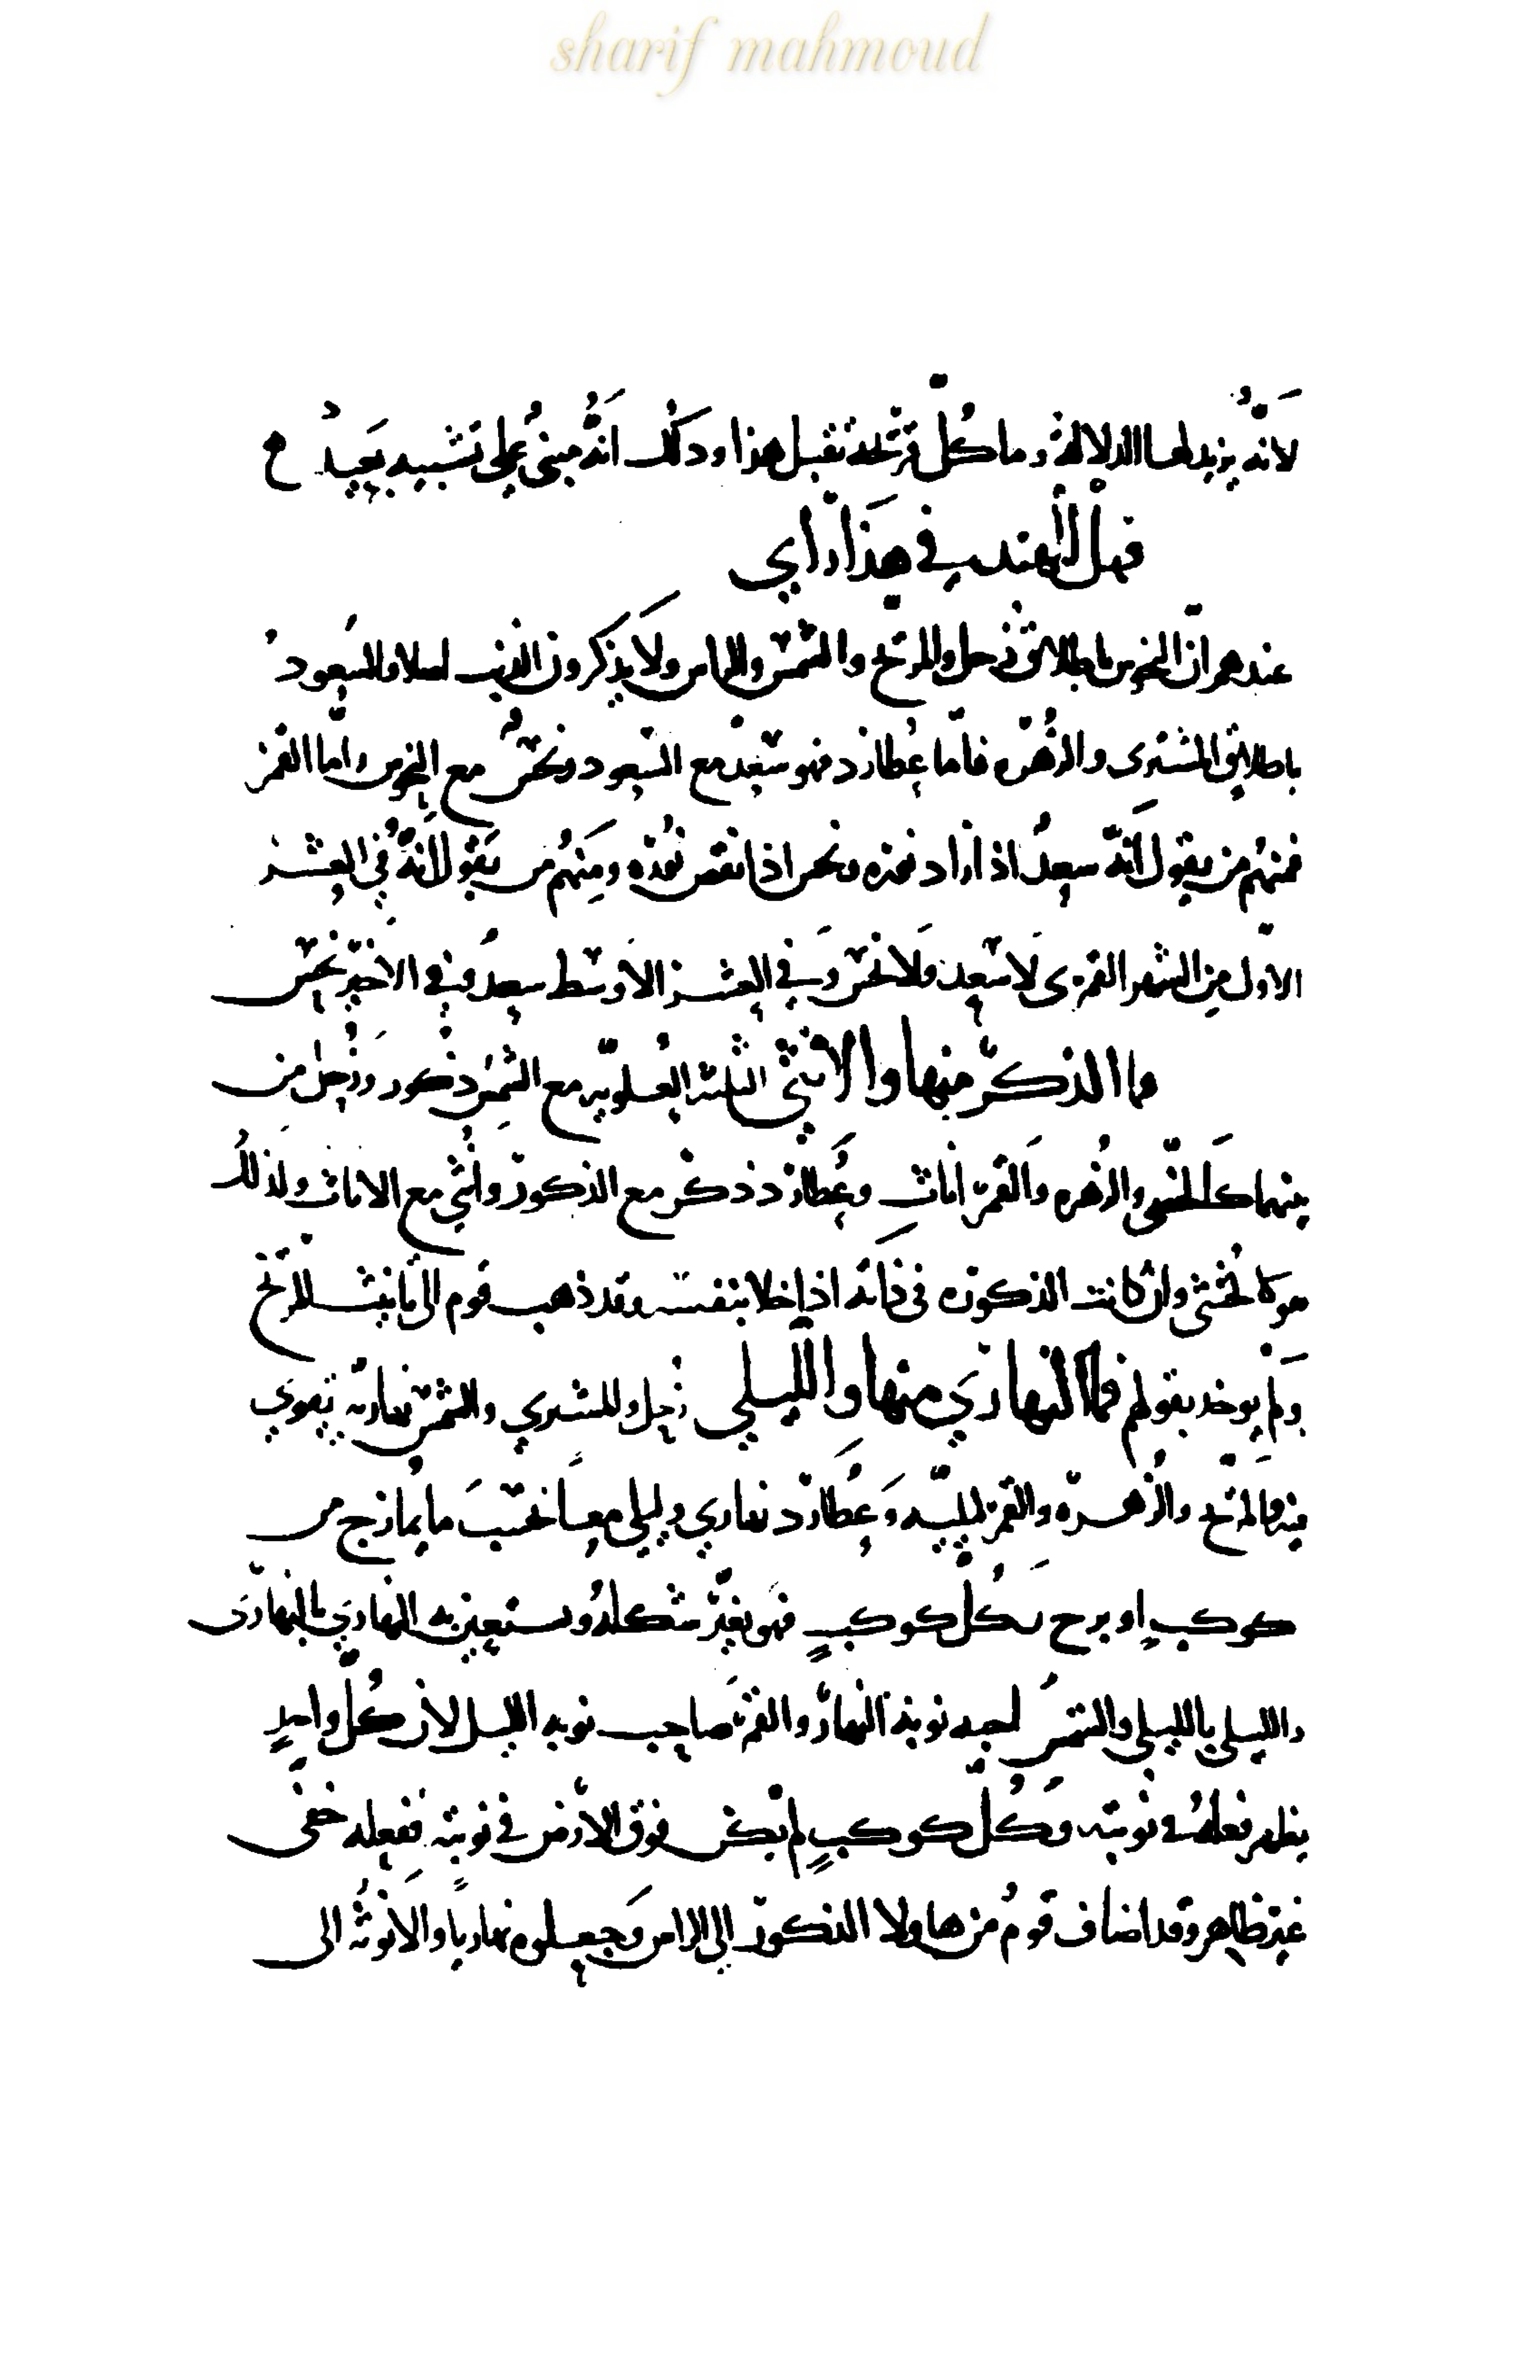 sharif mahmoud
لانّه يزيد لها الدلالة وما كلّ قريحة تقبل هذا وذلك انّه مبنىّ على تشبيه بعيد
فهل للهند في هذا راي
عندهم انّ النحوس باطلاق زحل والمرّيخ والشمس والراس ولا يذكرون الذنب اصلا والسعود
باطلاق المشترى والزُهرة فامّا عُطارد فهو سعد مع السعود ونحس مع النحوس وامّا القمر
فمنهم من يقول انّه سعد اذا زاد نوره ونحس اذا نقص نُوره ومنهم من يقول انّه في العشر
الاوّل من الشهر القمرى لا سعد ولا نحس وفي العشر الاوسط سعد وفي الاخير نحس
ما الذكر منها والانثى الثلثة العُلويّه مع الشمس ذكور وزُحل من
بينهما كالخنثى والزُهره والقمر اناث وعُطارد ذكر مع الذكور وانثى مع الاناث ولذلك
هو كالخنثى وان كانت الذكورة في ذاته اذا خلا بنفسه وقد ذهب قوم الى تانيث المرّيخ
ولم يوخذ بقولهم فما النهاري منها والليلي زُحل والمشتري والشمس نهاريّة تقوي
فيه والمرّيخ والزُهرة والقمر ليليّه وعُطارد نهاري وليلي معا بحسب ما يمازج من
كوكب او برج بكلّ كوكب فهو يغيّر شكله ويستعين به النهاري بالنهارى
والليلي بالليلي والشمس صاحبه نوبة النهار والقمر صاحب نوبه الليل لان كلّ واحد
يظهر فعله في نوبته وكلّ كوكب لم يكن فوق الارض في نوبته ففعله خفى
غير ظاهر وقد اضاف قوم من هاولا الذكور الى الراس وجعلوه نهاريا والانوثة الى